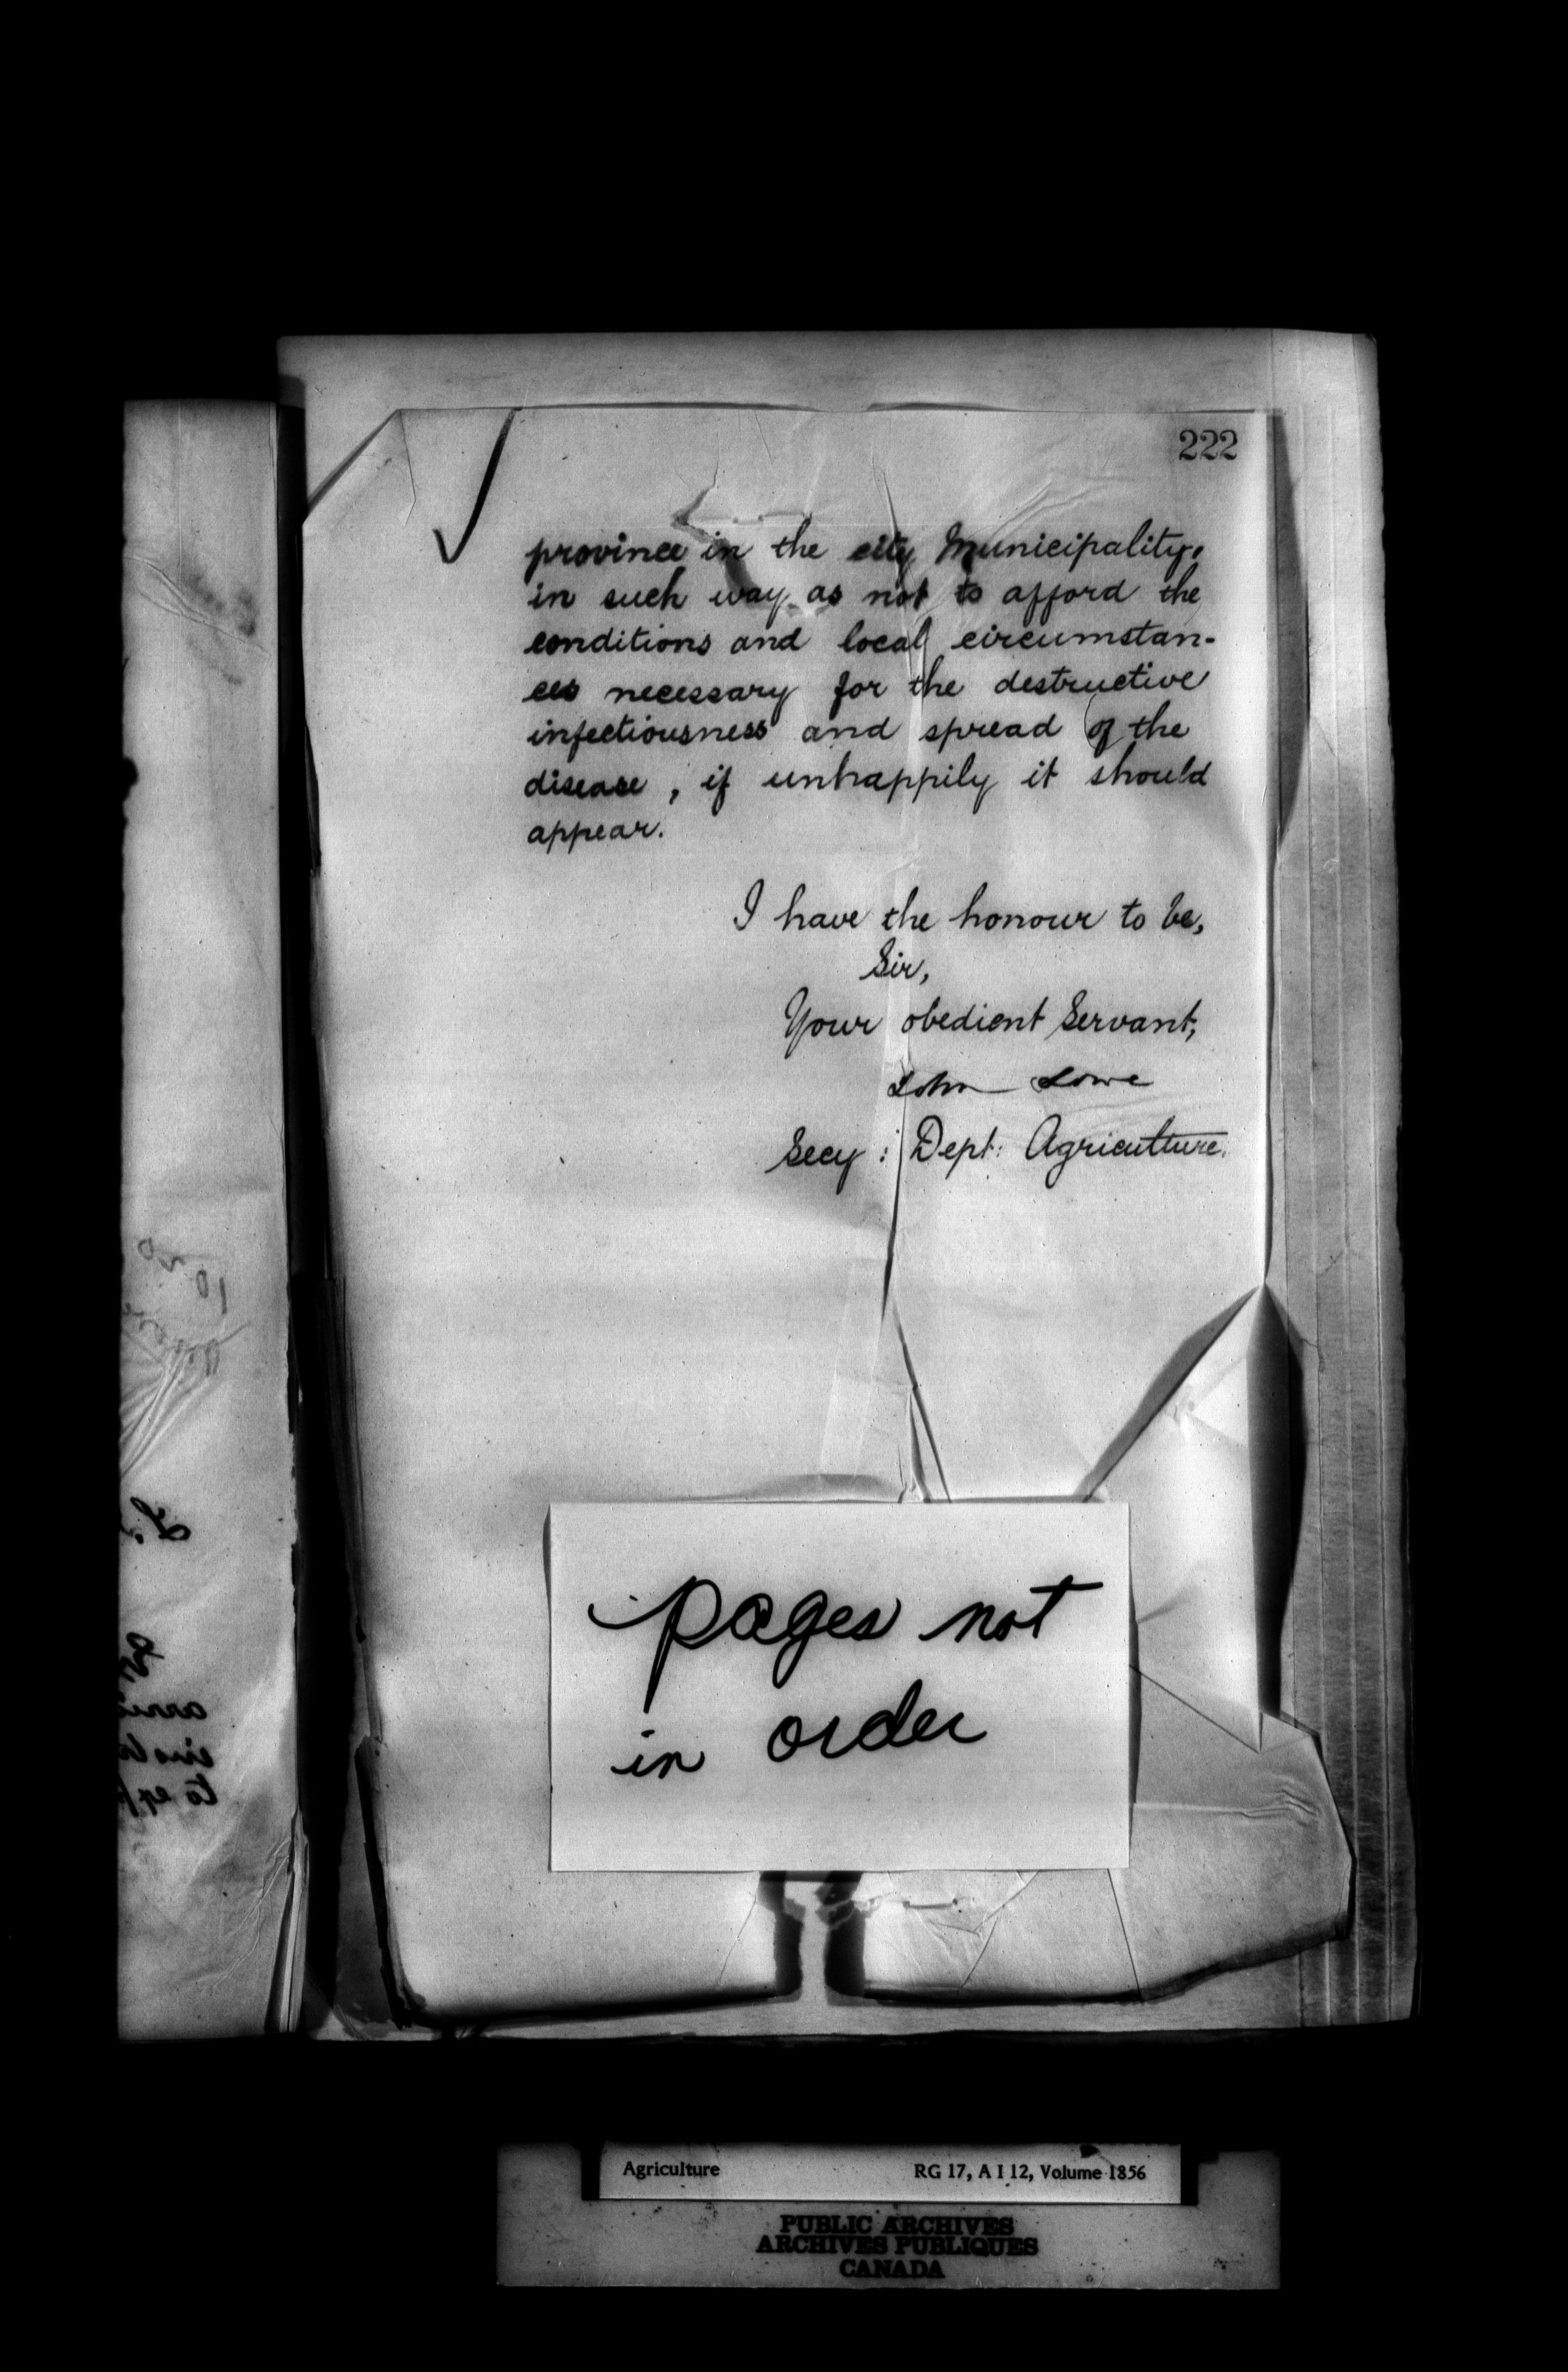 222
province in the city Municipality,
in such way as not to afford the
conditions and local circumstan-
ces necessary for the destructive
infectiousness and spread of the
disease, if unhappily it should
appear.
I have the honour to be,
Sir,
Your obedient Servant,
John Lowe
Secy: Dept: Agriculture.
pages not
in order
Agriculture RG 17, A I 12, Volume 1856
PUBLIC ARCHIVES
ARCHIVES PUBLIQUES
CANADA